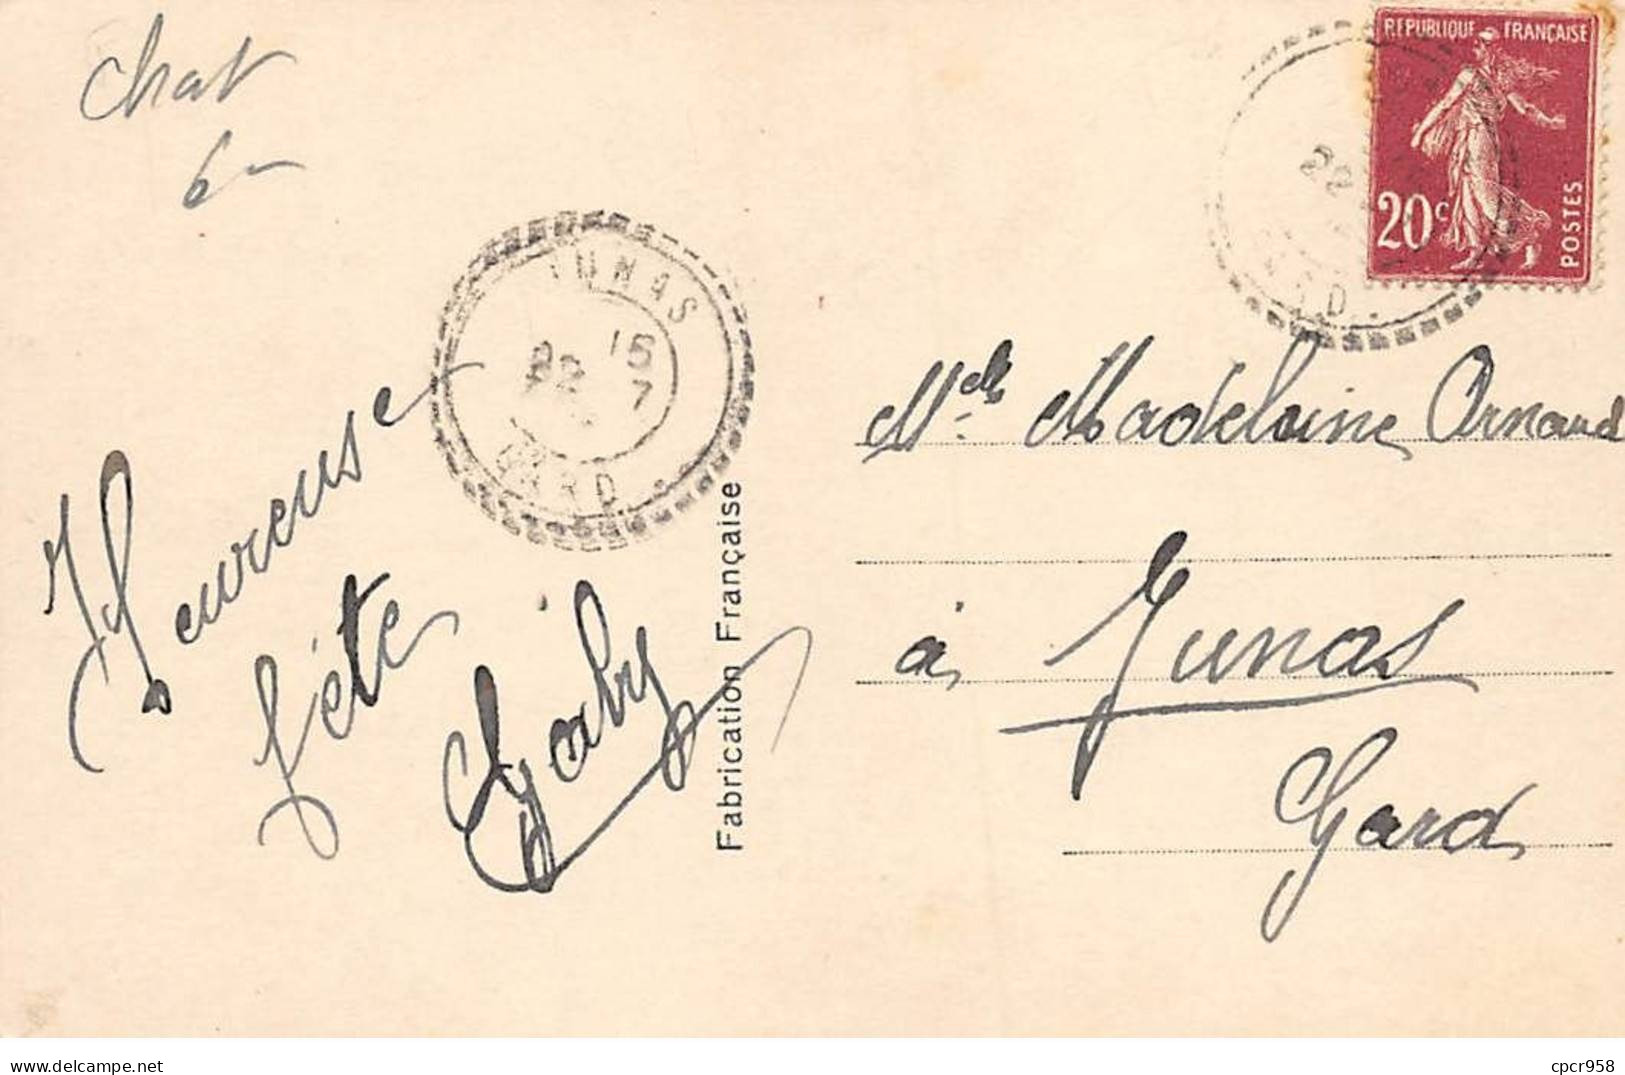 Chat
6-
RÉPUBLIQUE FRANÇAISE
20c
POSTES
22
JUNAS
15
22 7
GARD
Heureuse
fête
Gaby
Fabrication Française
Melle Madeleine Arnaud
à Junas
Gard
delcampe.net
cpcr958